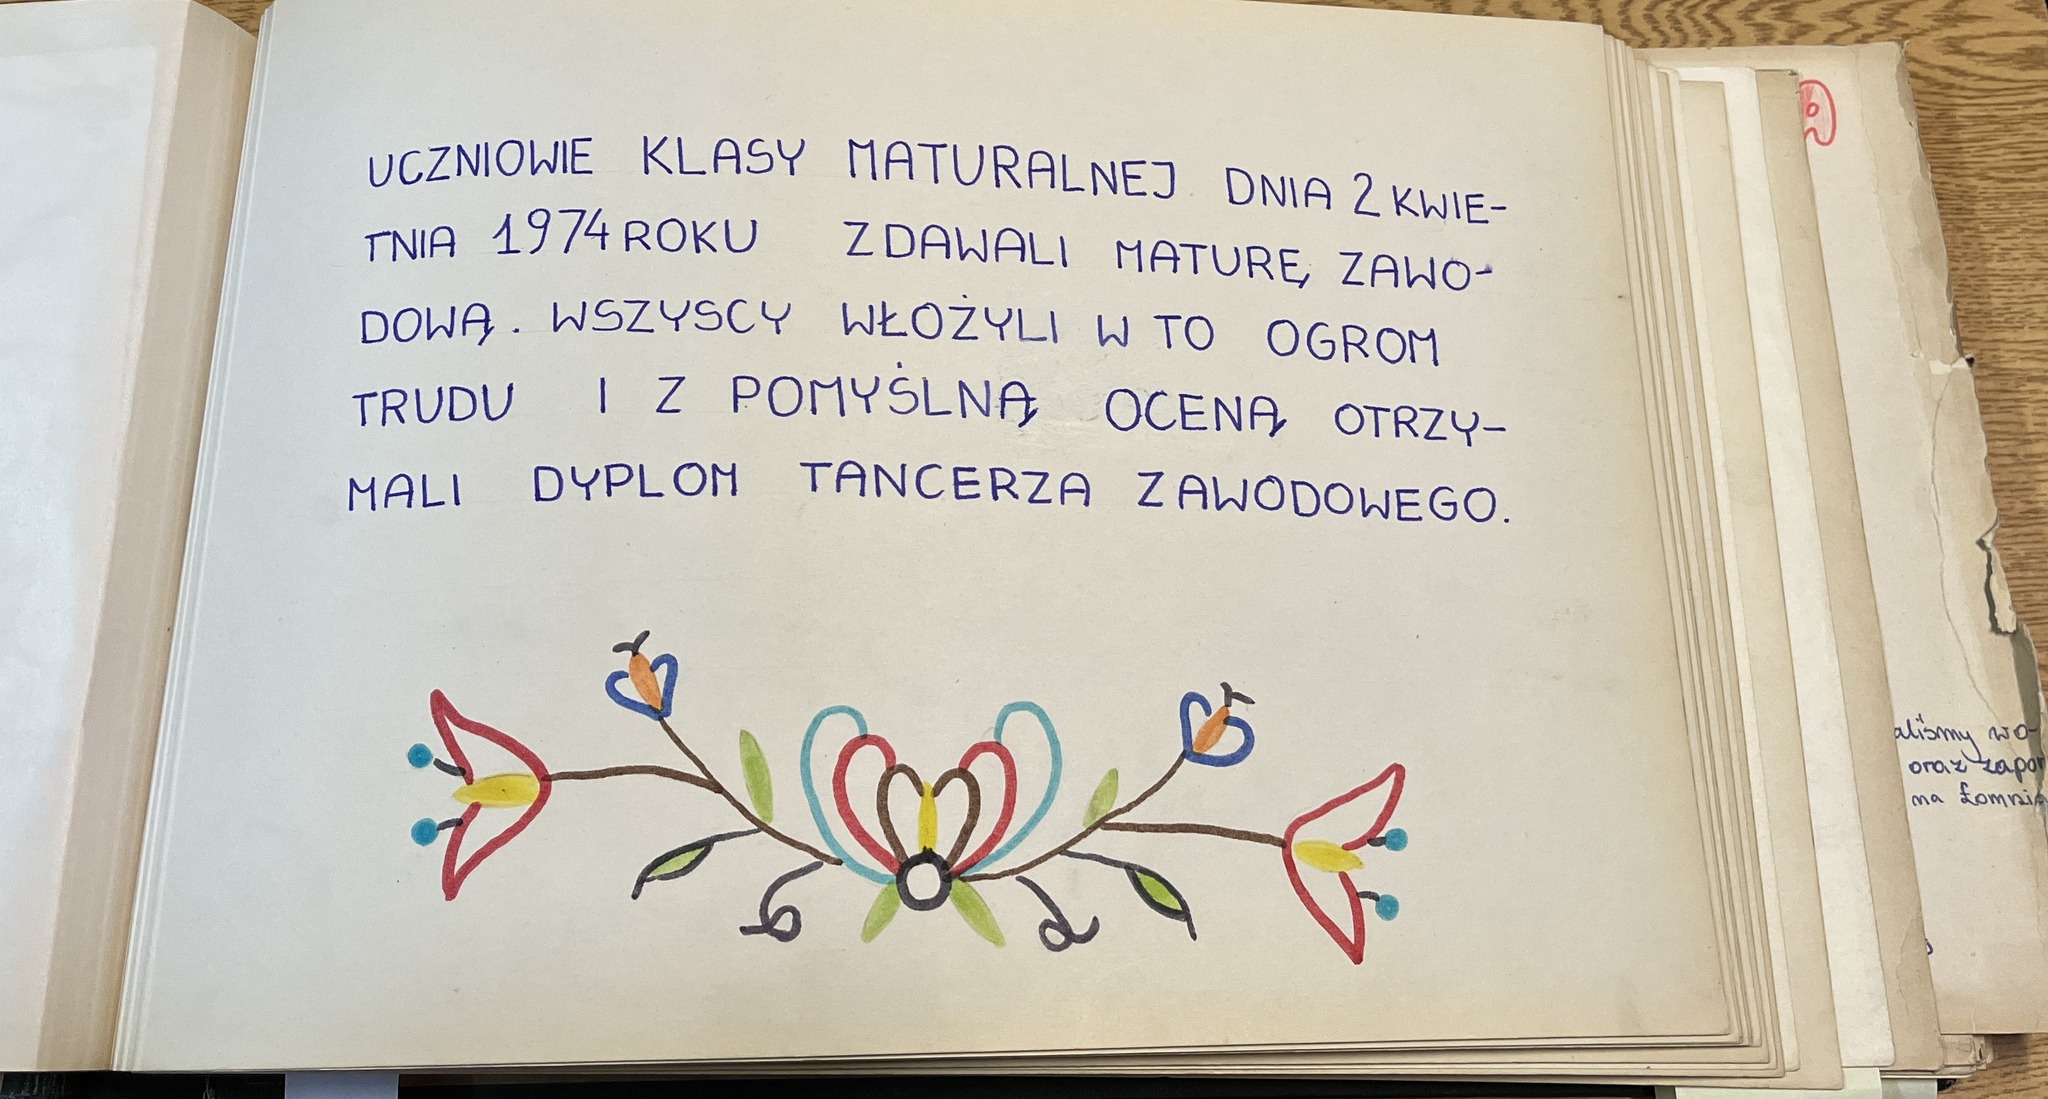 UCZNIOWIE KLASY MATURALNEJ DNIA 2 KWIE-
TNIA 1974 ROKU ZDAWALI MATURĘ ZAWO-
DOWĄ. WSZYSCY WŁOŻYLI W TO OGROM
TRUDU I Z POMYŚLNĄ OCENĄ OTRZY-
MALI DYPLOM TANCERZA ZAWODOWEGO.
aliśmy wo-
oraz zapo
na Łomni